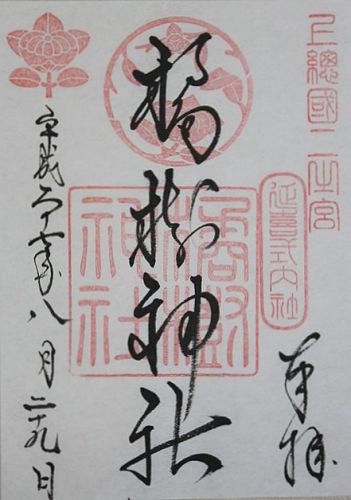 上總國二之宮
延喜式內社
奉拝
橘樹神社
橘樹神社
平成二十七年八月二十九日